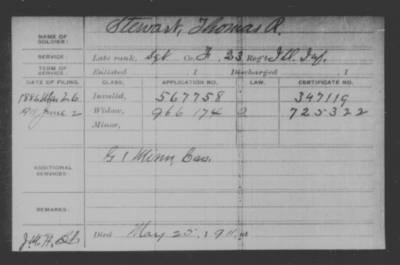 NAME OF SOLDIER: Stewart, Thomas R.
SERVICE Late rank, Sgt Co. F, 23 Reg't Ill. Inf.
TERM OF SERVICE Enlisted , 1 Discharged , 1
DATE OF FILING. CLASS. APPLICATION NO. LAW. CERTIFICATE NO.
1886 26 Invalid, 567758 347119
1911 June 2 Widow, 966174 725322
Minor,
ADDITIONAL SERVICES: G 1 Minn Cav.
REMARKS:
Died May 25, 1911, at